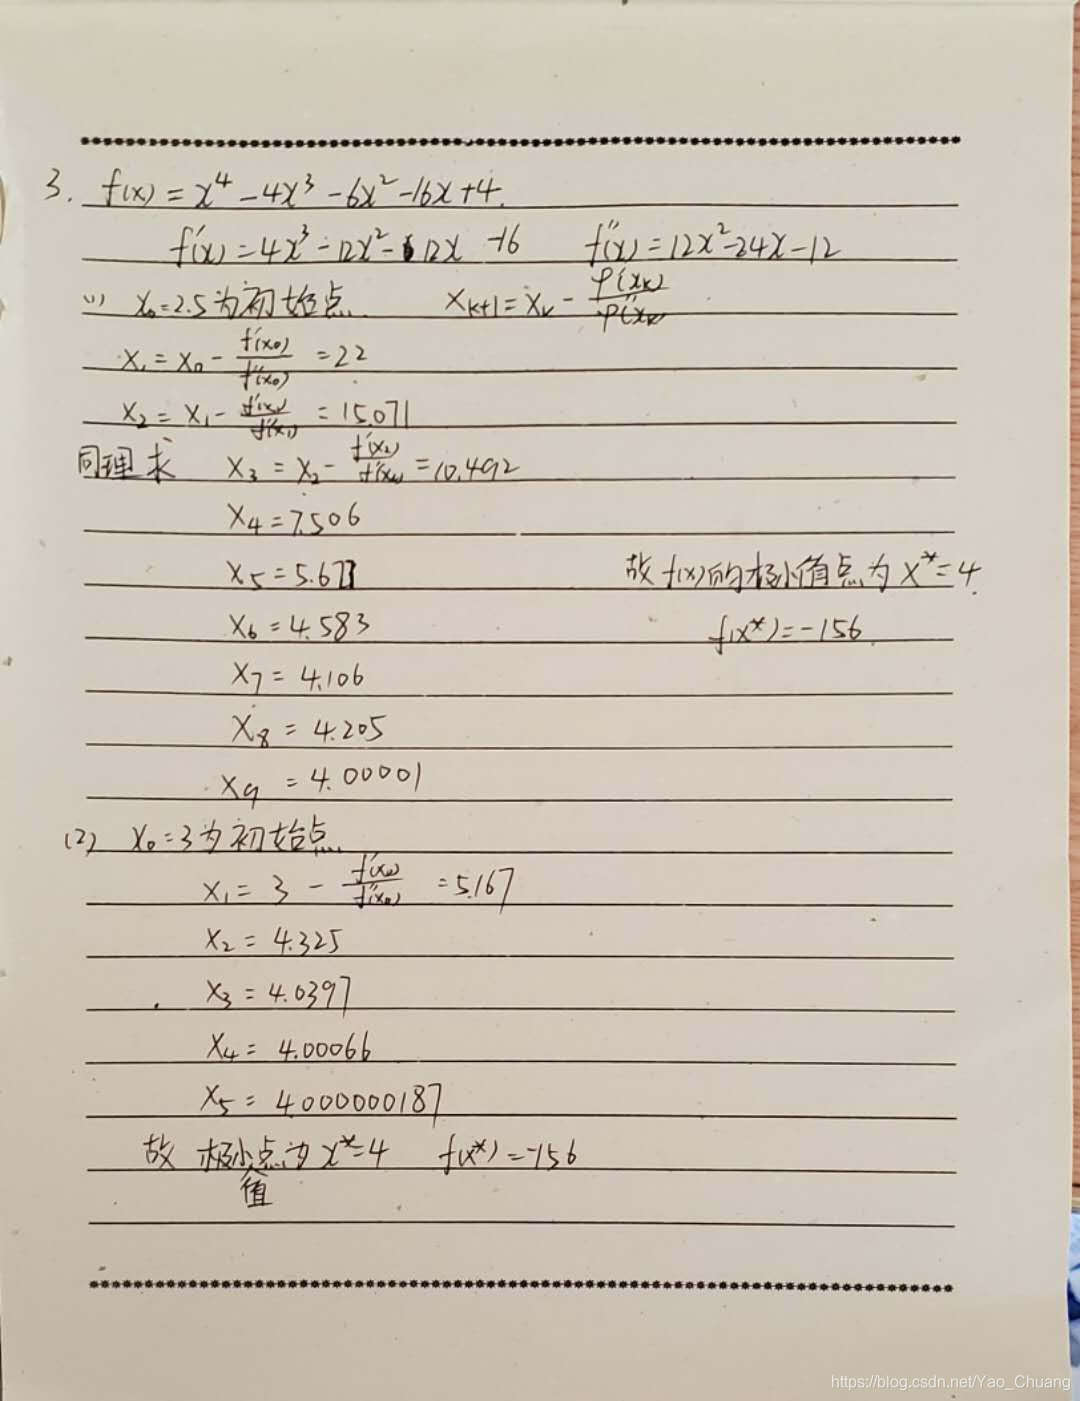 3. f(x) = x⁴ - 4x³ - 6x² - 16x + 4.
f'(x) = 4x³ - 12x² - 12x - 16 f''(x) = 12x² - 24x - 12
(1) x₀=2.5为初始点. x_{k+1} = x_k - φ'(x_k)/φ''(x_k)
x₁ = x₀ - f'(x₀)/f''(x₀) = 22
x₂ = x₁ - f'(x₁)/f''(x₁) = 15.071
同理求 x₃ = x₂ - f'(x₂)/f''(x₂) = 10.492
x₄ = 7.506
x₅ = 5.677 故f(x)的极小值点为 x* = 4.
x₆ = 4.583 f(x*) = -156
x₇ = 4.106
x₈ = 4.205
x₉ = 4.00001
(2) x₀=3为初始点.
x₁ = 3 - f'(x₀)/f''(x₀) = 5.167
x₂ = 4.325
x₃ = 4.0397
x₄ = 4.00066
x₅ = 4.000000187
故 极小值点为 x* = 4 f(x*) = -156
https://blog.csdn.net/Yao_Chuang